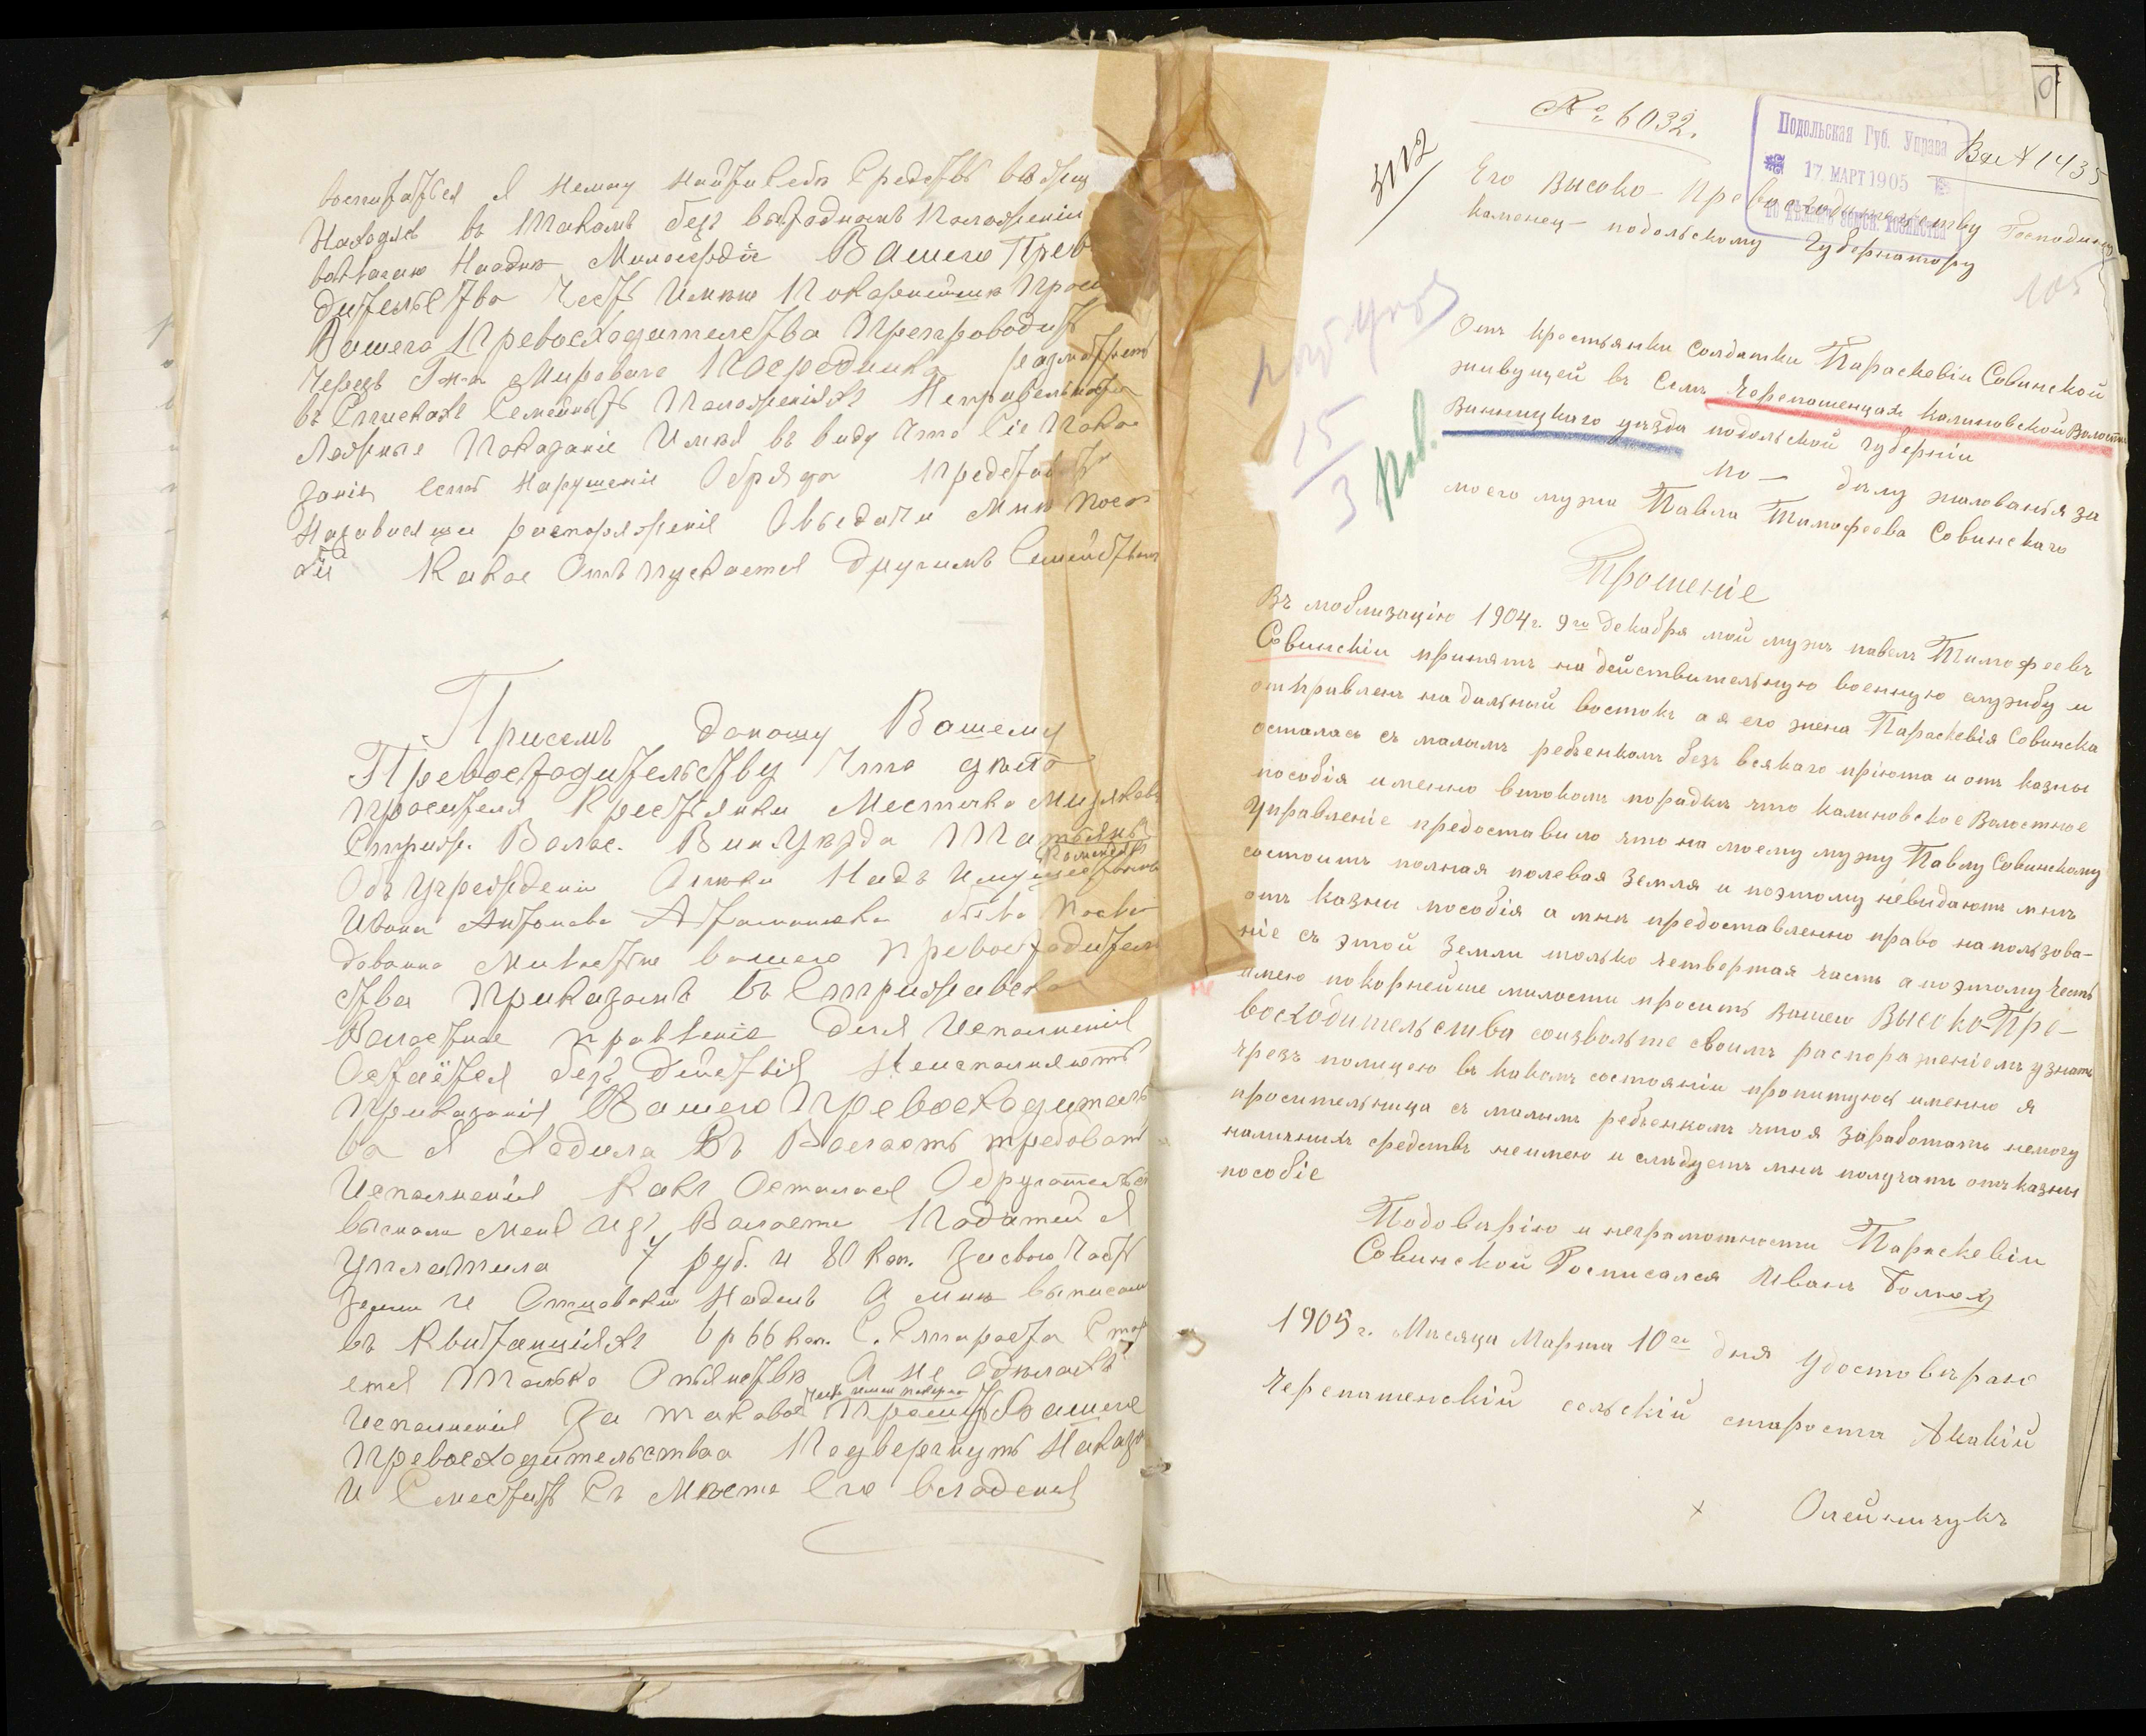 воспитатся Я немогу найти себе средствъ
Находясь въ Такомъ безъ выходномъ Положеніи
Милосердіе Вашего Прев
дительства Честь Имею Покорнейше Прос
Вашего Превосходителства Препроводить
Черезъ Г-на Мироваго Посредника разматреть
въ Спискахъ Семейныхъ Положеніяхъ Неправельно
Ложные Показаніе Имея въ виду Что Сіе Пока
заніе есть нарушеніе Обряда
распоряженіе мне Посо
біе Какое Отъ пускается другимъ Семействам
Присемъ доношу Вашему
Превосходительству Что дело
просителя Крестьянки Местечка Мизяков
Стриж. Волос. Вин. Уезда
Объ Учреждени Опеки Надъ Имуществомъ
Ивана Антонова было
Милостью вашего превосходител
ства Приказомъ въ Стрижавско
Волостное правленіе Для Исполненія
Остаётся безъ Действія Неисполняютъ
Приказанія Вашего Превосходитель
ва Я Ходила Въ Волость требоват
Исполненія Какъ Осталося
выгнали меня изъ Волости Податей Я
Уплатила 7 руб. и 80 коп. за свою Часть
земли и Отцовский Надель А мне выписали
въ Квитанціяхъ 6 р 66 коп. С. Староста Стар
ется Только О пьянстве А не О делахъ
Исполненія За таковое Честь имею покорно Прошу Вашего
Превосходительства Подвергнуть Наказ
и Сместить Съ Места Его владенія
№ 6032.
Подольская Губ. Управа
17 МАРТ 1905
Вх № 1435
3112
Его Высоко-Превосходительству Господину
Каменец-подольскому Губернатору
105
Отъ крестьянки солдатки Параскевіи Совинской
живущей въ Селъ Черепашенцахъ калиновской Волости
Винницкаго уезда подольской губерніи
15
3
по — делу жалованья за
моего мужа Павла Тимофеева Совинскаго
Прошеніе
Въ моблизацію 1904 г. 9го декабря мой мужъ павелъ Тимофеевъ
Совинскіи принятъ на действительную военную службу и
отправленъ на дальный востокъ а я его жена Параскевія Совинска
осталась съ малымъ ребъенкомъ безъ всякаго пріюта и отъ казны
пособія именно втокомъ порадкъ что калиновское Волостное
Управленіе предоставило что на моему мужу Павлу Совинскому
состоитъ полная полевая Земля и поэтому невидаютъ мнъ
отъ казны пособія а мнъ предоставленно право на пользова-
ніе съ этой Земли только четвертая часть а поэтому честь
имею покорнейше милости просить Вашего Высоко-Пре-
восходительства соизвольте своимъ распоражениемъ узнать
чрезъ полицею въ какомъ состояніи пропитуюсь именно я
просительница съ малымъ ребъенкомъ что я Заработать немогу
наличнихъ средствъ неимею и слъдуетъ мнъ получать отъ казны
пособіе
Подоверію и неграмотности Параскевіи
Совинской Росписался Иванъ
1905 г. Месяца Марта 10го дня Удостоверяю
Черепашенскій сельскій староста Акакій
Олейничукъ